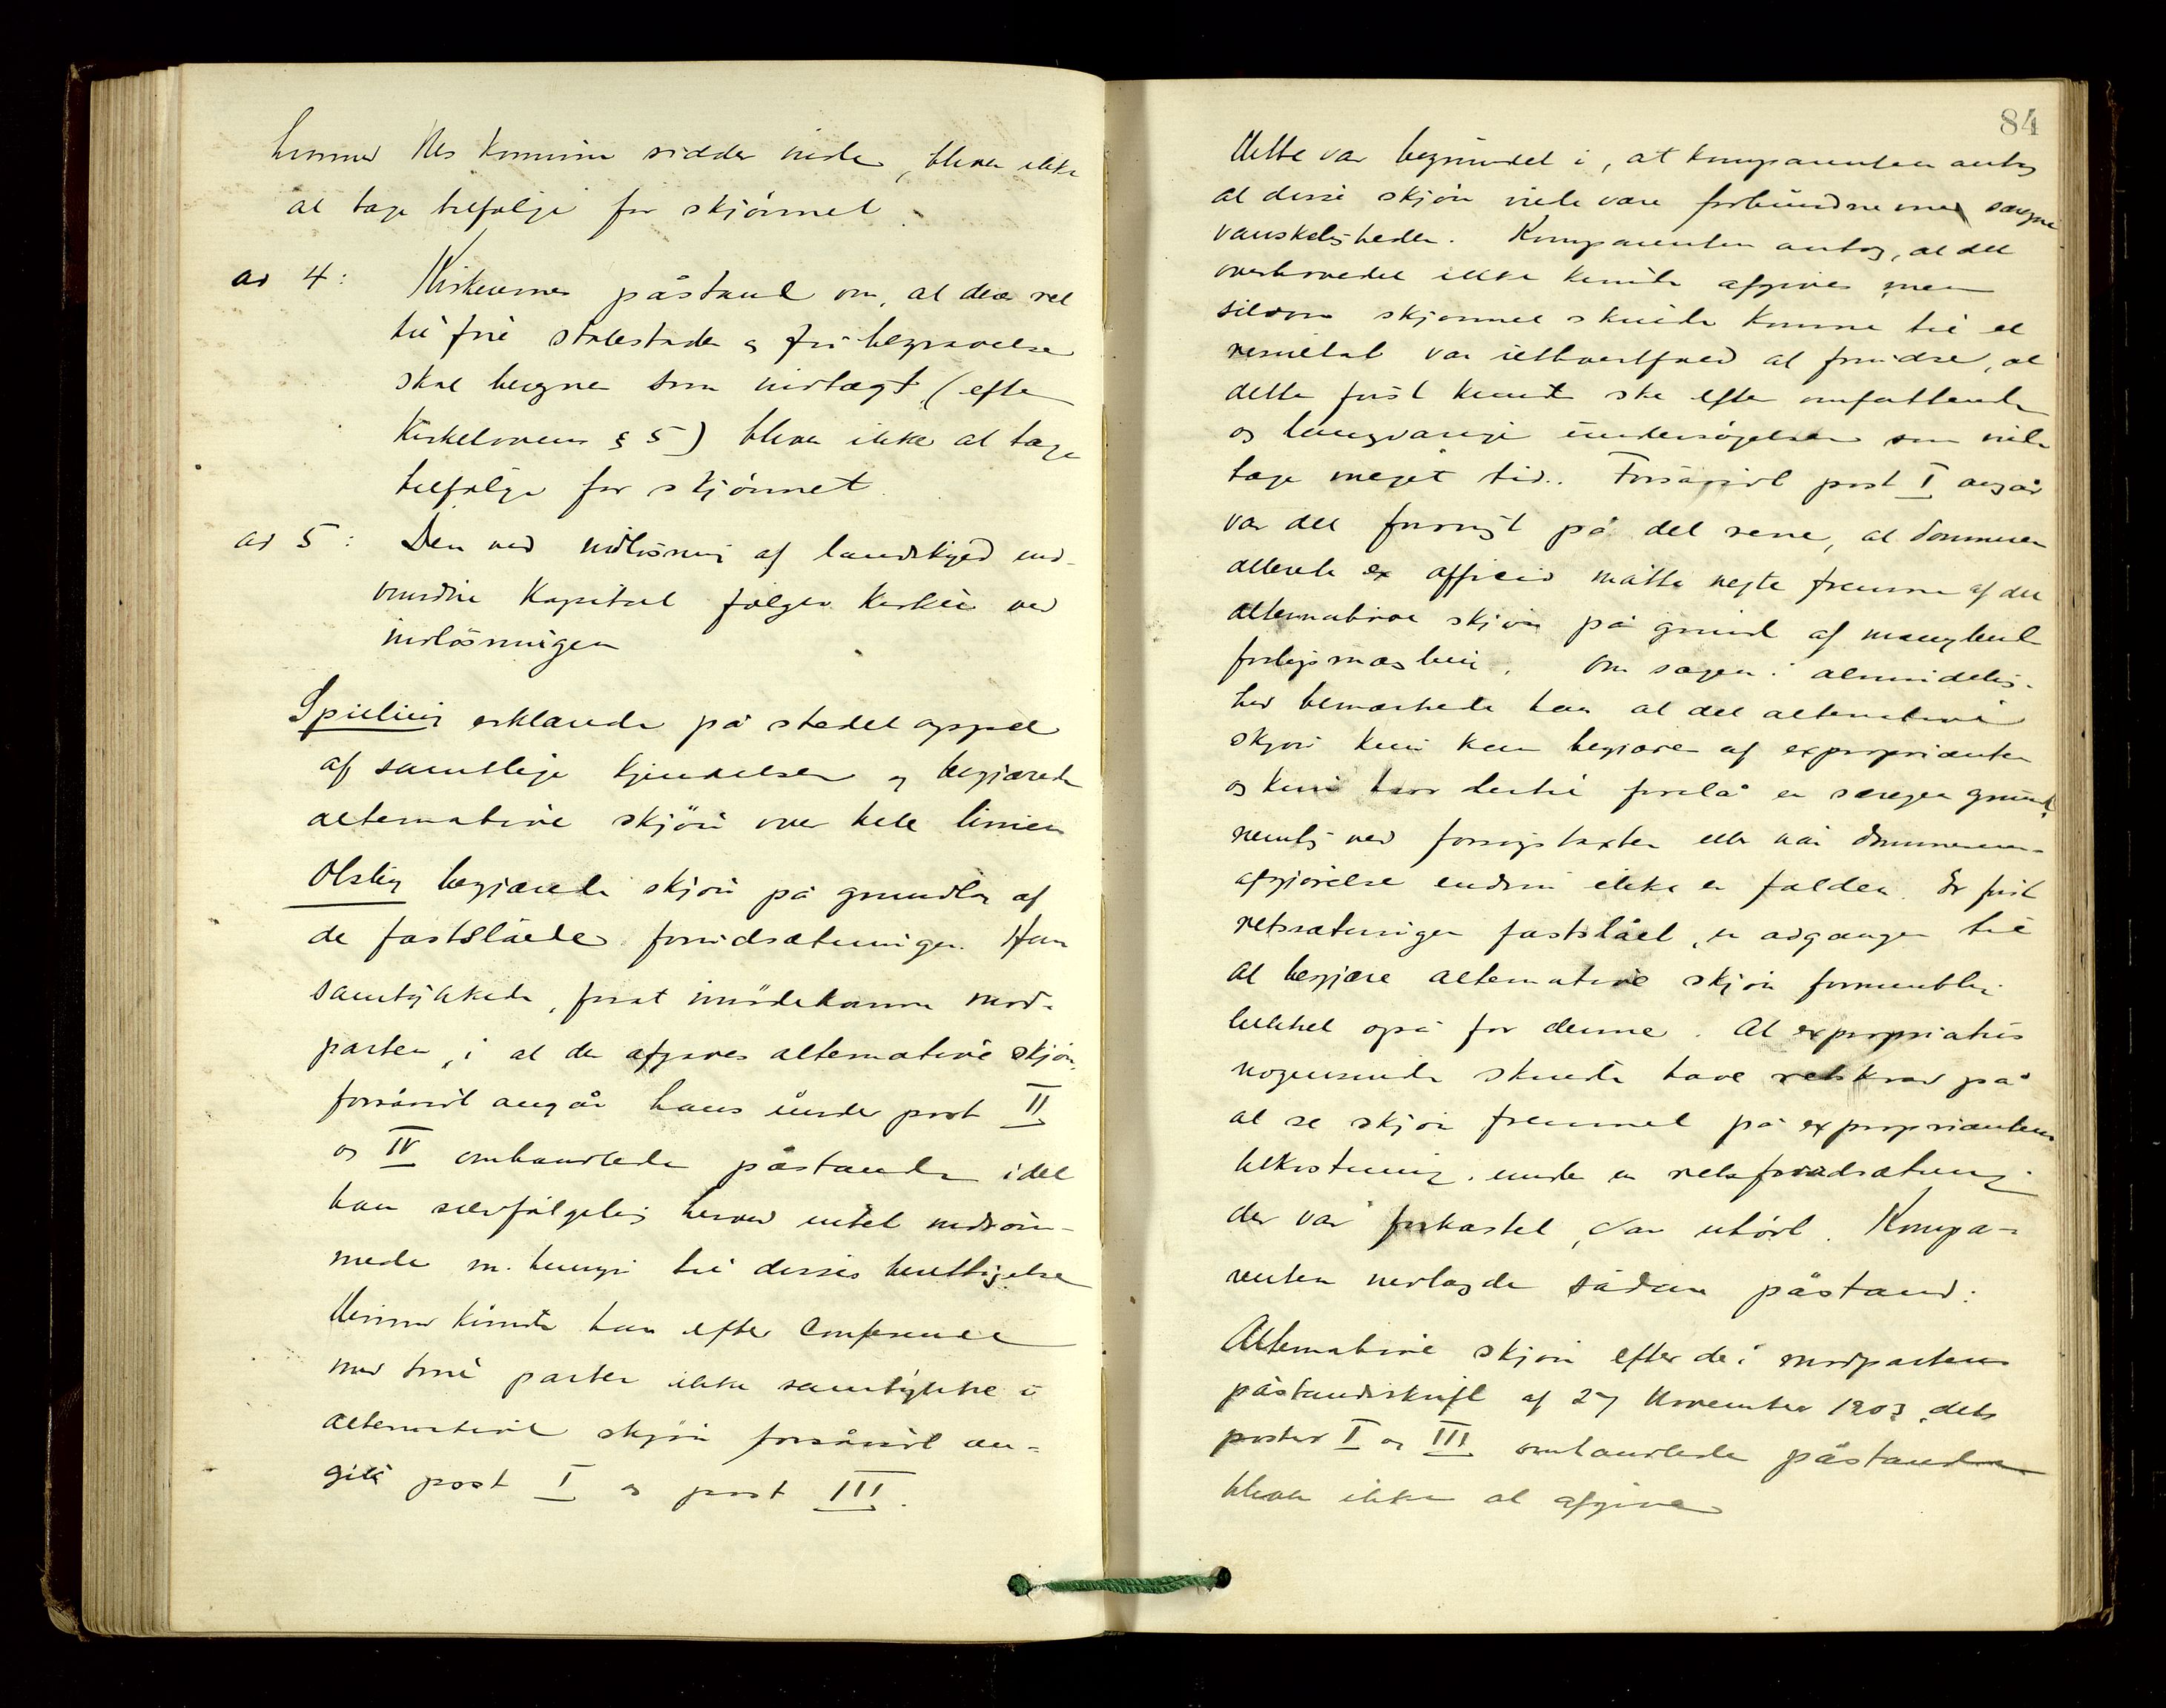 hvormed Nes kommune sidder inde, bliver ikke
at tage tilfølge for skjønnet.
ad 4: Kirkeiernes påstand om, at deres ret
til frie stolestader og fri begravelse
skal beregnes som indtægt (efter
Kirkelovens § 5) bliver ikke at tage
tilfølge for skjønnet.
ad 5: Den ved indløsning af landskyld ind-
vundne Kapital følger kirken ved
indløsningen
erklærede på stedet appel
af samtlige kjendelser og begjærede
alternative skjøn over hele linien
Olsby begjærede skjøn på grundlag af
de fastslåede forudsætninger. Han
samtykkede, forat imødekomme mod-
parten, i at der afgaves alternative skjøn,
forsåvidt angår hans under post II
og IV omhandlede påstande idet
han selvfølgelig herved intet indrøm-
mede m. hensyn til disses berettigelse
Derimod kunde han efter Conference
med sine parter ikke samtykke i
alternativt skjøn forsåvidt an-
gik post I og post III.
84
Dette var begrundet i, at komparenten antog
at disse skjøn vilde være forbundne med særegne
vanskeligheder. Komparenten antog, at det
overhovedet ikke kunde afgives, men
selvom skjønnet skulde komme til et
resultat var iethvertfald at forudse, at
dette først kunde ske efter omfattende
og langvarige undersøgelser som vilde
tage meget tid. Forsåvidt post I angår
var det forøvrigt på det rene, at dommeren
allerede ex officio måtte negte fremme af det
alternative skjøn på grund af manglende
forligsmægling. Om sagen i almindelig-
hed bemærkede han at det alternative
skjøn kun kan begjæres af exproprianten
og kun hvor dertil forelå en særegen grund,
nemlig ved forsøgstaxter eller når dommerens
afgjørelse endnu ikke er falden. Er først
retssætningen fastslået, er adgangen til
at begjære alternative skjøn formentlig
lukket også for denne. At expropriatus
nogensinde skulde have retskrav på
at se skjøn fremmet på expropriantens
bekostning under en retsforudsætning
der var forkastet, var uhørt. Kompa-
renten nedlagde sådan påstand:
Alternative skjøn efter de i modpartens
påstandsskrift af 27 November 1903, dets
poster I og III omhandlede påstande
bliver ikke at afgive